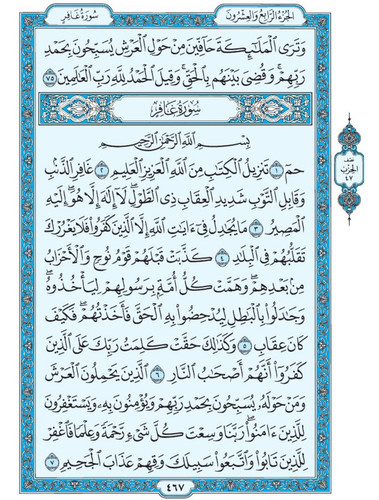 سُورَةُ غَافِرٍ
الجُزْءُ الرَّابِعُ وَالعِشْرُونَ
وَتَرَى ٱلْمَلَٰٓئِكَةَ حَآفِّينَ مِنْ حَوْلِ ٱلْعَرْشِ يُسَبِّحُونَ بِحَمْدِ
رَبِّهِمْ ۖ وَقُضِىَ بَيْنَهُم بِٱلْحَقِّ وَقِيلَ ٱلْحَمْدُ لِلَّهِ رَبِّ ٱلْعَٰلَمِينَ ٧٥
سُورَةُ غَافِرٍ
بِسْمِ ٱللَّهِ ٱلرَّحْمَٰنِ ٱلرَّحِيمِ
حمٓ ١ تَنزِيلُ ٱلْكِتَٰبِ مِنَ ٱللَّهِ ٱلْعَزِيزِ ٱلْعَلِيمِ ٢ غَافِرِ ٱلذَّنۢبِ
وَقَابِلِ ٱلتَّوْبِ شَدِيدِ ٱلْعِقَابِ ذِى ٱلطَّوْلِ ۖ لَآ إِلَٰهَ إِلَّا هُوَ ۖ إِلَيْهِ
ٱلْمَصِيرُ ٣ مَا يُجَٰدِلُ فِىٓ ءَايَٰتِ ٱللَّهِ إِلَّا ٱلَّذِينَ كَفَرُوا۟ فَلَا يَغْرُرْكَ
تَقَلُّبُهُمْ فِى ٱلْبِلَٰدِ ٤ كَذَّبَتْ قَبْلَهُمْ قَوْمُ نُوحٍ وَٱلْأَحْزَابُ
مِنۢ بَعْدِهِمْ ۖ وَهَمَّتْ كُلُّ أُمَّةٍۭ بِرَسُولِهِمْ لِيَأْخُذُوهُ ۖ
وَجَٰدَلُوا۟ بِٱلْبَٰطِلِ لِيُدْحِضُوا۟ بِهِ ٱلْحَقَّ فَأَخَذْتُهُمْ ۖ فَكَيْفَ
كَانَ عِقَابِ ٥ وَكَذَٰلِكَ حَقَّتْ كَلِمَتُ رَبِّكَ عَلَى ٱلَّذِينَ
كَفَرُوٓا۟ أَنَّهُمْ أَصْحَٰبُ ٱلنَّارِ ٦ ٱلَّذِينَ يَحْمِلُونَ ٱلْعَرْشَ
وَمَنْ حَوْلَهُۥ يُسَبِّحُونَ بِحَمْدِ رَبِّهِمْ وَيُؤْمِنُونَ بِهِۦ وَيَسْتَغْفِرُونَ
لِلَّذِينَ ءَامَنُوا۟ رَبَّنَا وَسِعْتَ كُلَّ شَىْءٍ رَّحْمَةً وَعِلْمًا فَٱغْفِرْ
لِلَّذِينَ تَابُوا۟ وَٱتَّبَعُوا۟ سَبِيلَكَ وَقِهِمْ عَذَابَ ٱلْجَحِيمِ ٧
٤٦٧
نصف
الحزب
٤٧